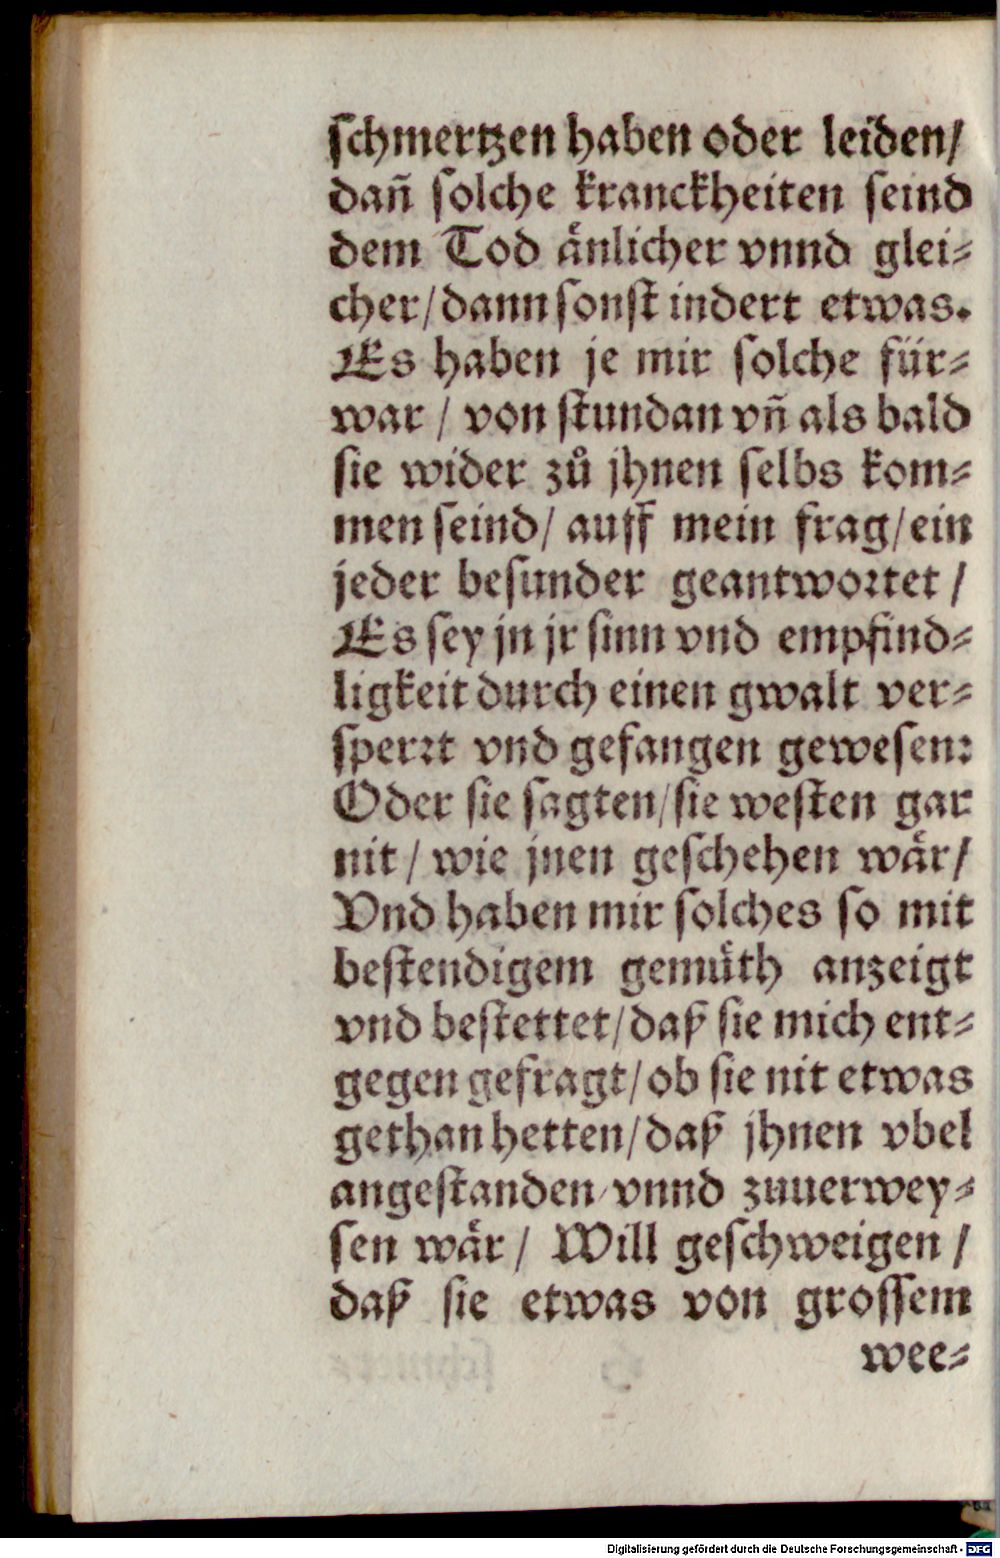 schmertzen haben oder leiden/
dañ solche kranckheiten seind
dem Tod aͤnlicher vnnd glei⸗
cher/dann sonst indert etwas.
Es haben je mir solche für⸗
war / von stundan vñ als bald
sie wider zů jhnen selbs kom⸗
men seind/ auff mein frag/ein
jeder besunder geantwortet /
Es sey jn jr sinn vnd empfind⸗
ligkeit durch einen gwalt ver⸗
sperrt vnd gefangen gewesen:
Oder sie sagten/sie westen gar
nit / wie jnen geschehen waͤr/
Vnd haben mir solches so mit
bestendigem gemuͤth anzeigt
vnd bestettet/daß sie mich ent⸗
gegen gefragt/ob sie nit etwas
gethan hetten/daß jhnen vbel
angestanden/vnnd zuuerwey⸗
sen waͤr / Will geschweigen /
daß sie etwas von grossem
wee⸗
Digitalisierung gefördert durch die Deutsche Forschungsgemeinschaft - DFG